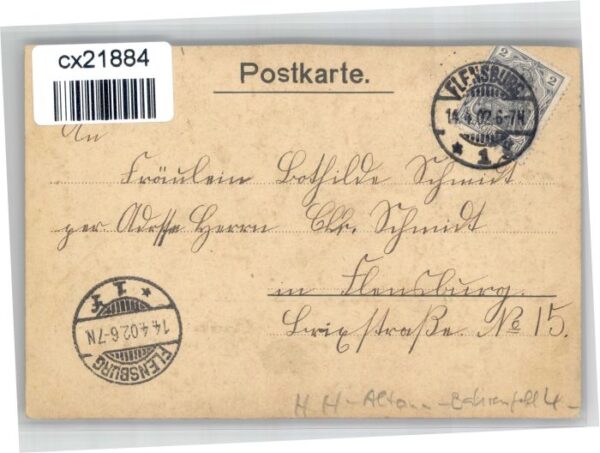 cx21884
Postkarte.
2 2
FLENSBURG
14.4.02.6-7N
* 1 f
An
Fräulein Bothilde Schmidt
per Adresse Herrn Chr. Schmidt
in Flensburg.
Brixstraße. No 15.
FLENSBURG
14.4.02.6-7N
* 1 f
H H - Altona - Bahrenfeld